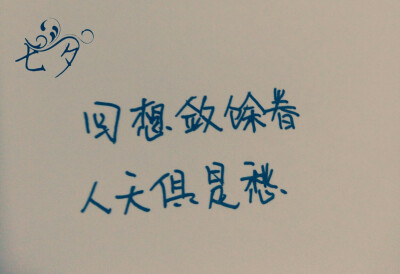 七夕
回想敛馀眷
人天俱是愁